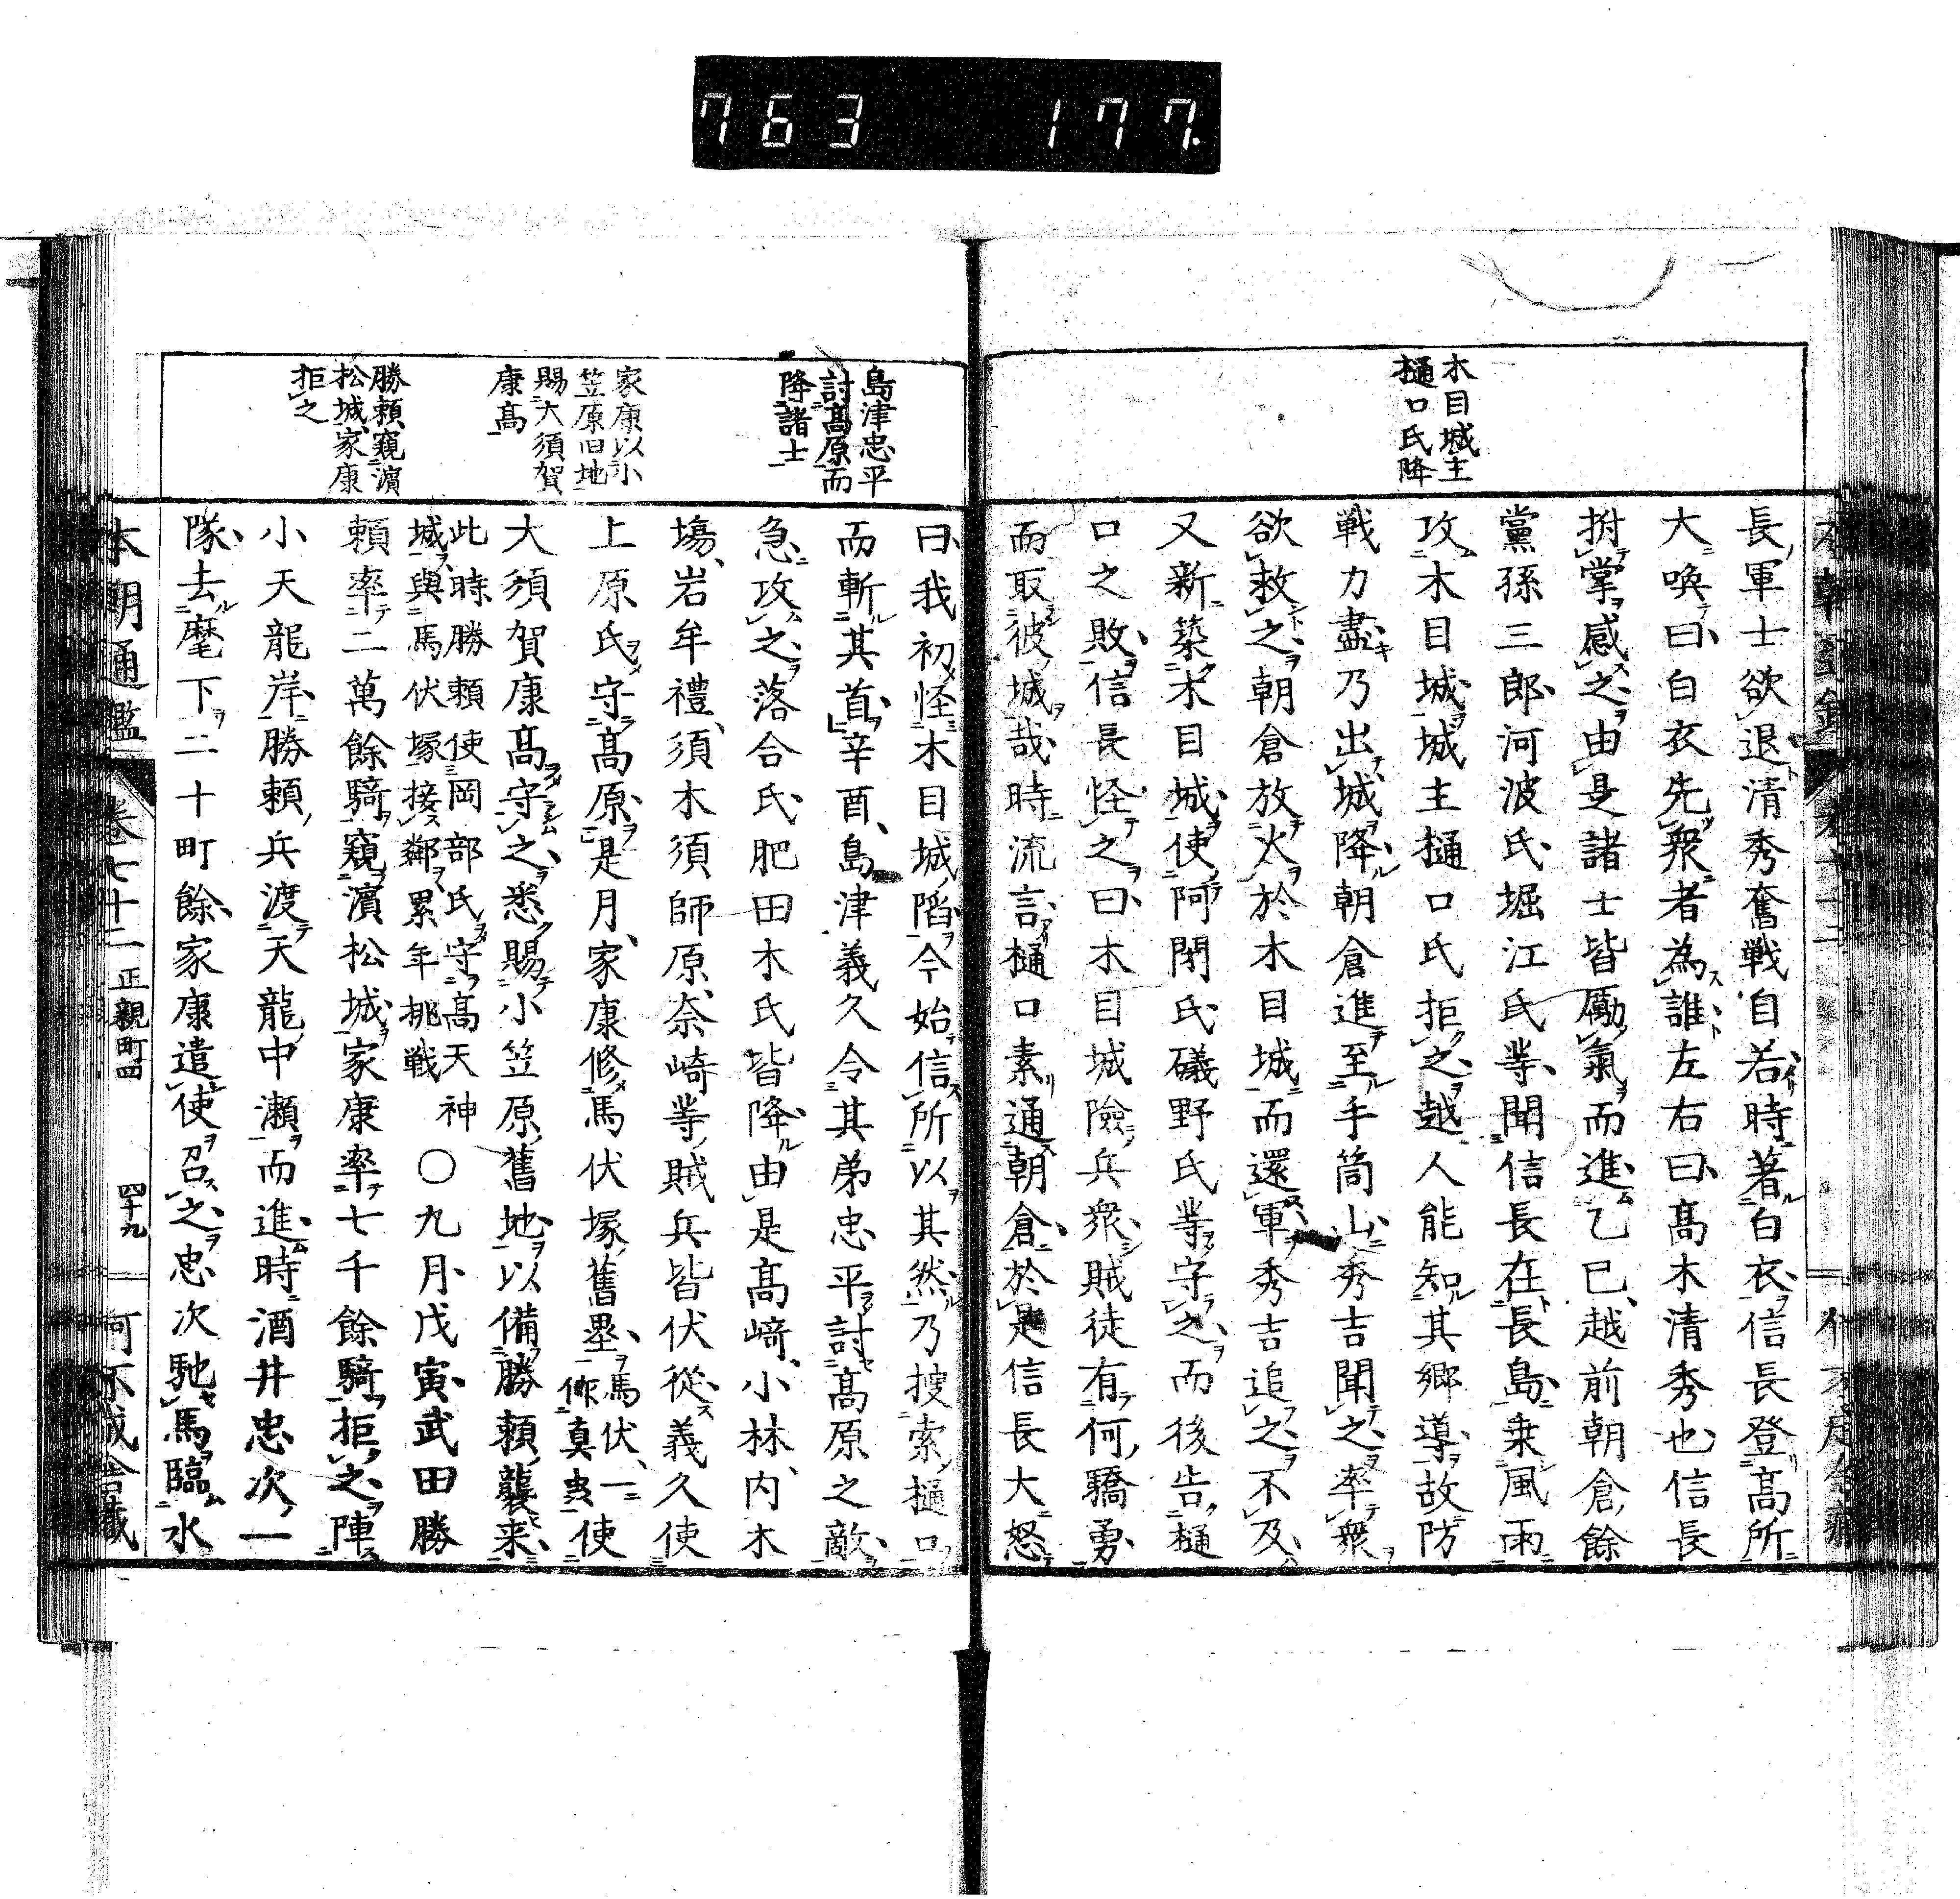 763 177.
木目城主
樋口氏降
長軍士欲退清秀奮戦自若時著白衣信長登髙所
大喚曰白衣先衆者為誰左右曰髙木清秀也信長
拊掌感之由是諸士皆勵氣而進乙巳越前朝倉餘
黨孫三郎河波氏堀江氏等聞信長在長島乗風雨
攻木目城城主樋口氏拒之越人能知其郷導故防
戦力盡乃出城降朝倉進至手筒山秀吉聞之率衆
欲救之朝倉放火於木目城而還軍秀吉追之不及
又新築木目城使阿閉氏礒野氏等守之而後告樋
口之敗信長怪之曰木目城險兵衆賊徒有何驕勇
而取彼城哉時流言樋口素通朝倉於是信長大怒
島津忠平
討髙原而
降諸士
家康以小
笠原旧地
賜大須賀
康髙
勝頼窺濵
松城家康
拒之
曰我初怪木目城陷今始信所以其然乃捜索樋口
而斬其首辛酉島津義久令其弟忠平討髙原之敵
急攻之落合氏肥田木氏皆降由是髙﨑小林内木
塲岩牟禮須木須師原奈崎等賊兵皆伏從義久使
上原氏守髙原是月家康修馬伏塚舊壘馬伏一作真虫使
大須賀康髙守之悉賜小笠原舊地以備勝頼襲来
此時勝頼使岡部氏守髙天神
城與馬伏塚接鄰累年挑戦
〇九月戊寅武田勝
頼率二萬餘騎窺濵松城家康率七千餘騎拒之陣
小天龍岸勝頼兵渡天龍中瀬而進時酒井忠次一
隊去麾下二十町餘家康遣使召之忠次馳馬臨水
本朝通鑑 卷七十二 正親町四 四十九